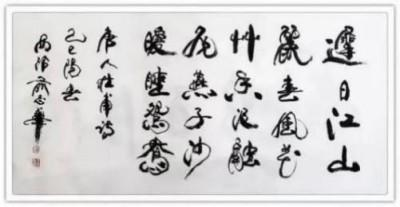 遲日江山
麗春風花
艸香泥融
飛燕子沙
暖睡鴛鴦
唐人杜甫詩
陽春
志華